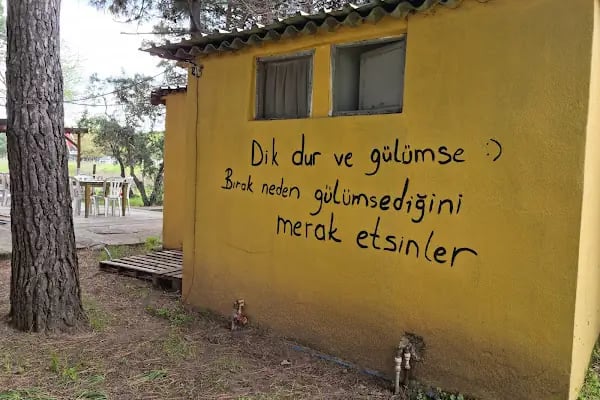 Dik dur ve gülümse :)
Bırak neden gülümsediğini
merak etsinler